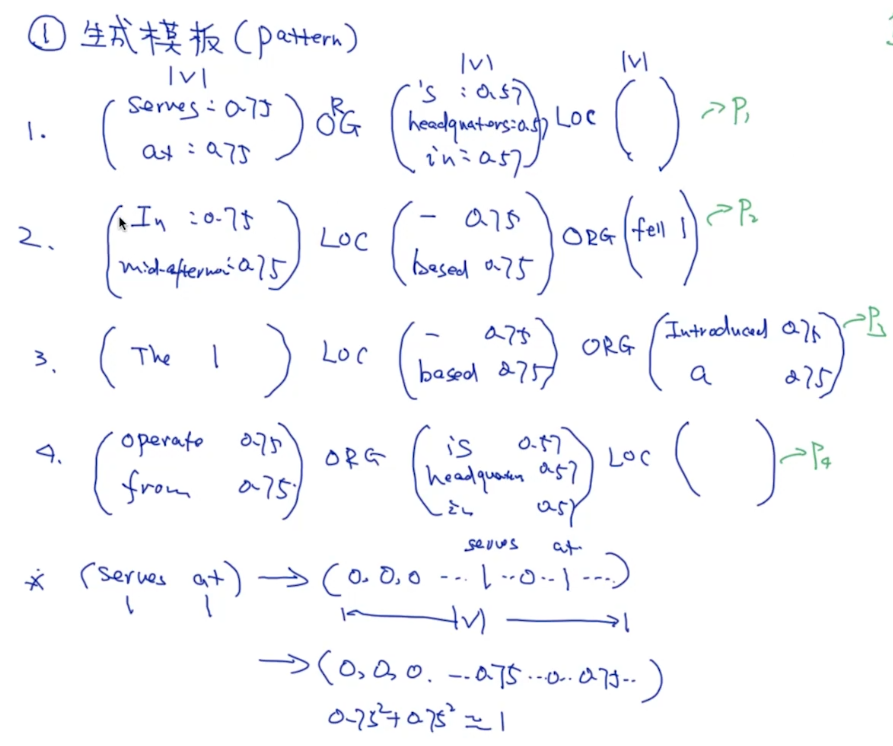 ① 生成模板 (pattern)
|V| |V| |V|
1. ( serves: 0.75 at: 0.75 ) ORG ( 's: 0.57 headquators: 0.57 in: 0.57 ) LOC ( ) → P1
2. ( In: 0.75 mid-afternoi: 0.75 ) LOC ( – 0.75 based 0.75 ) ORG ( fell 1 ) → P2
3. ( The 1 ) LOC ( – 0.75 based 0.75 ) ORG ( Introduced 0.75 a 0.75 ) → P3
4. ( operate 0.75 from 0.75 ) ORG ( is 0.57 headquarters 0.57 in 0.57 ) LOC ( ) → P4
serves at
* (serves at) → (0, 0, 0 ... 1 ..0.. 1 ....)
1 1 |V|
→ (0, 0, 0. ... 0.75 ...0.. 0.75..)
0.75²+0.75² ≃ 1